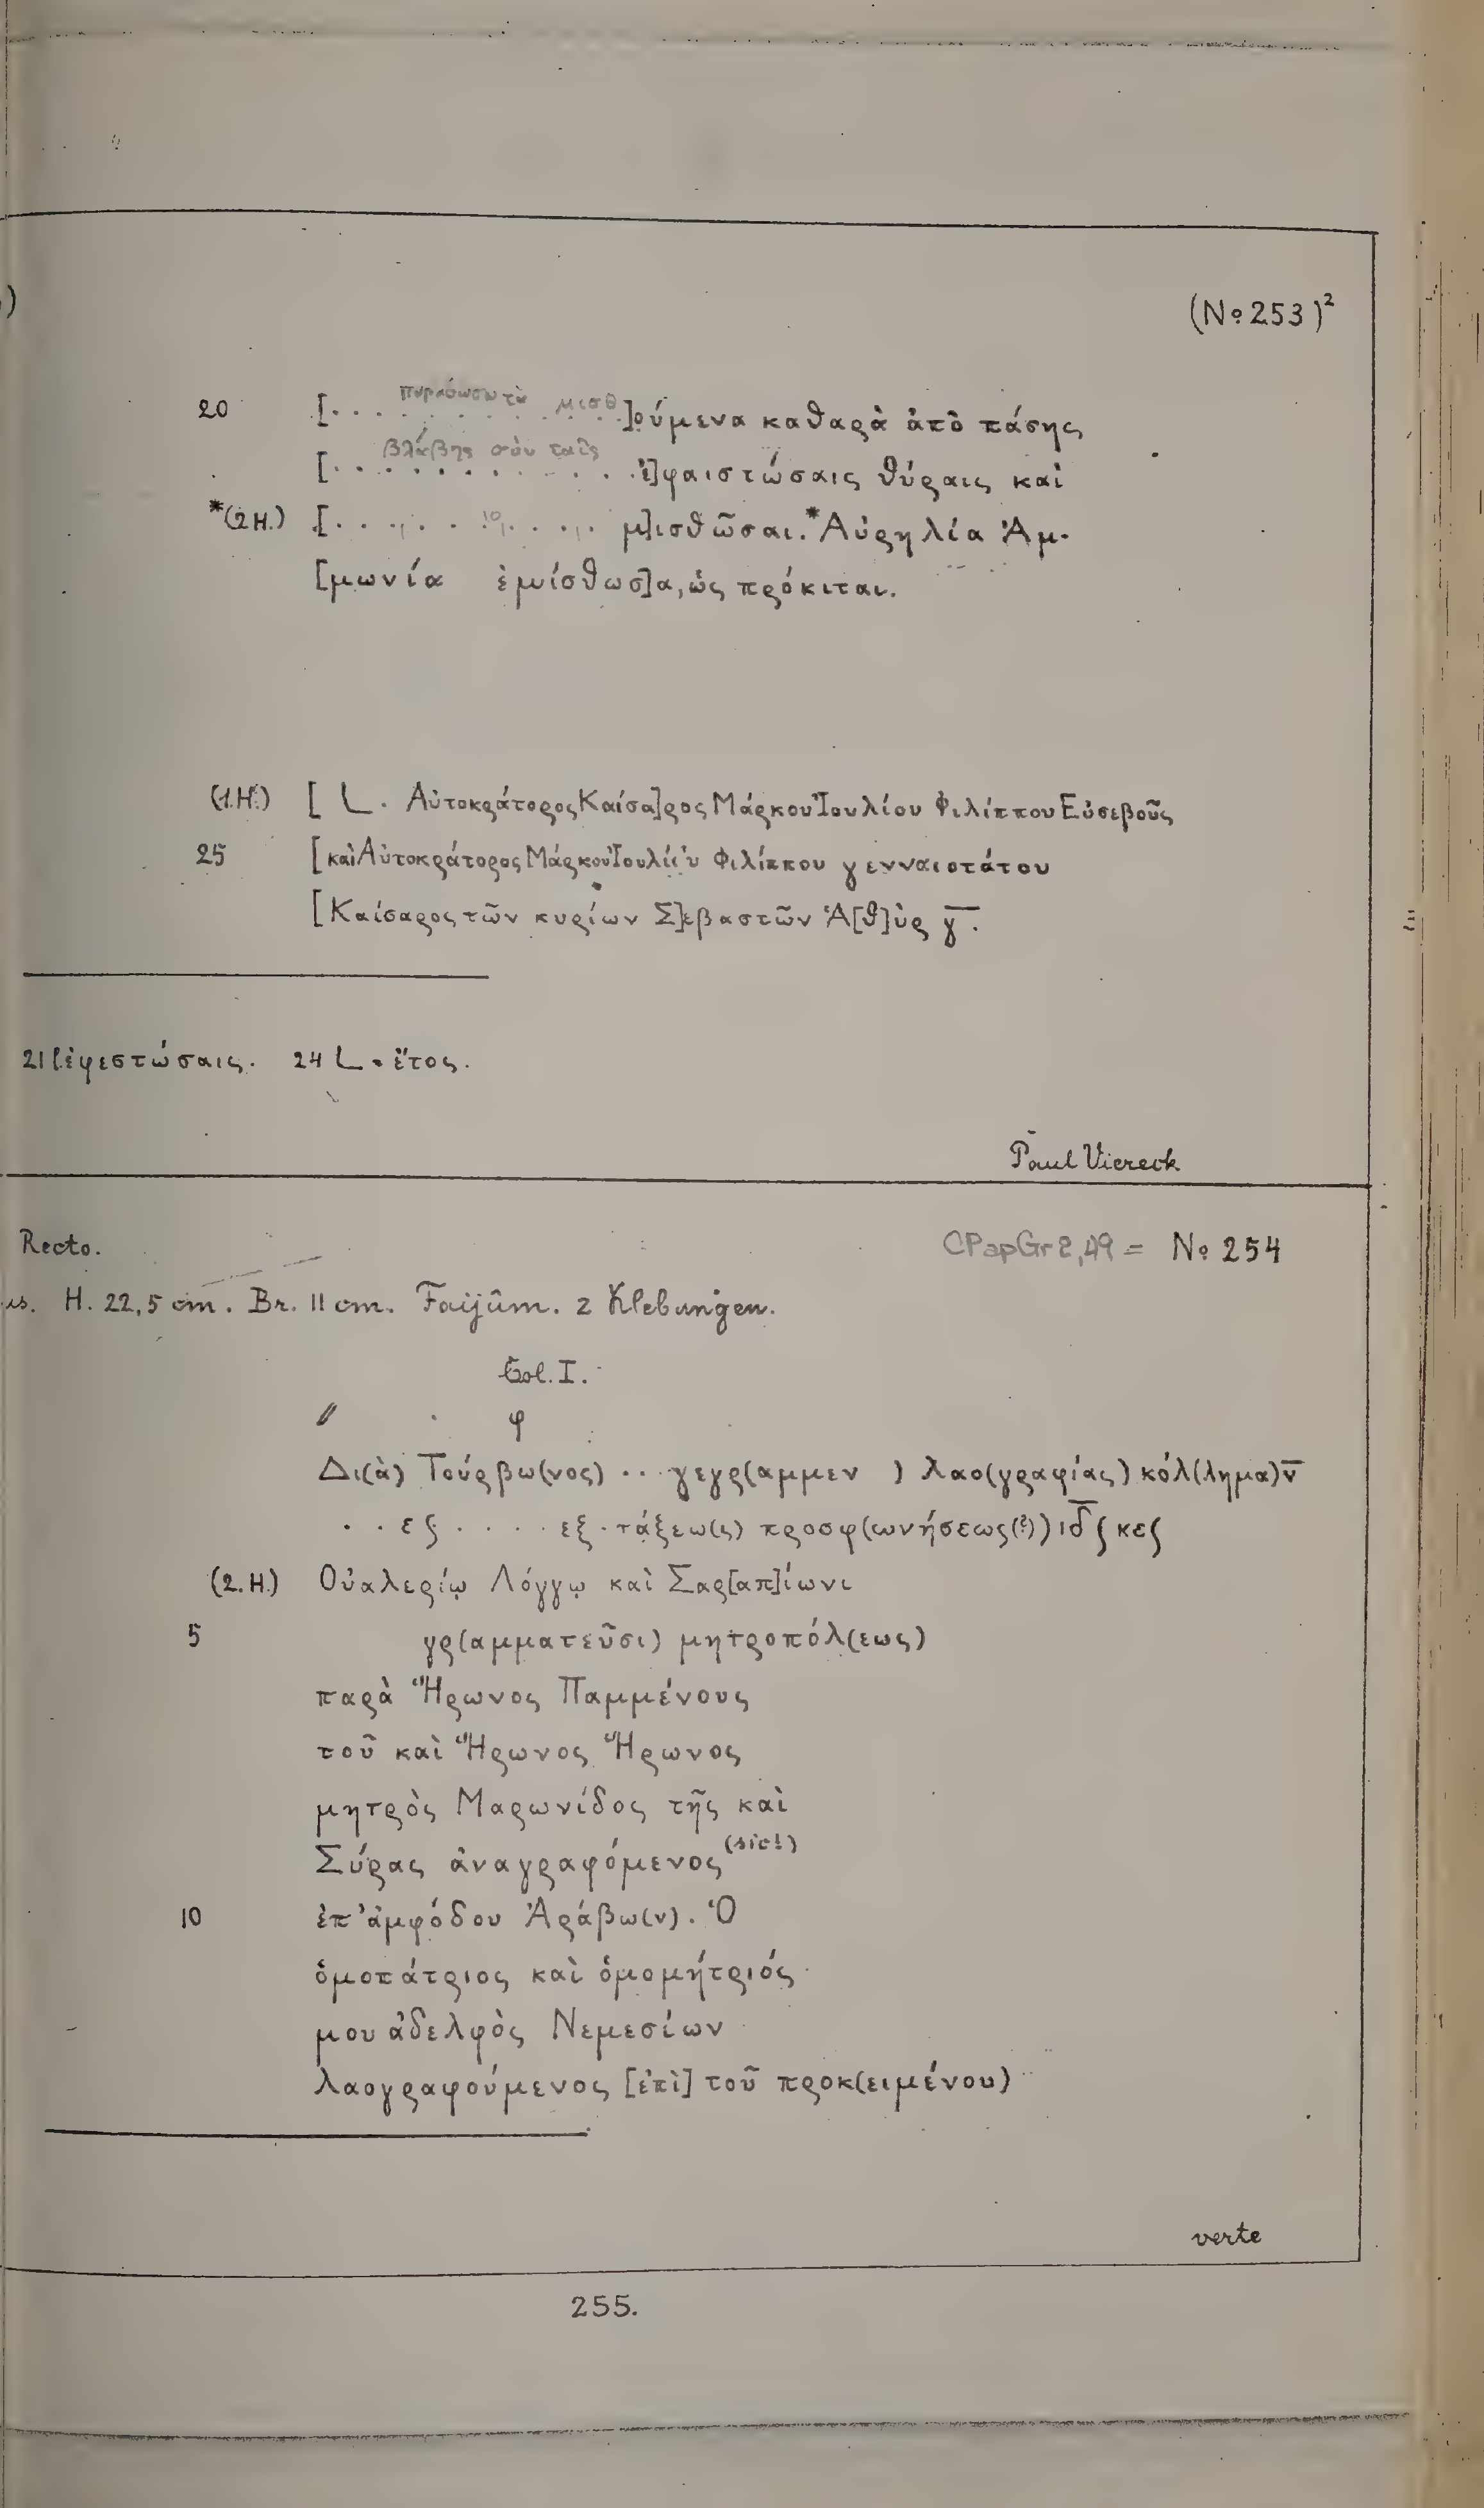 (No 253)²
20 [. . . . . . . . . . μισθ]ούμενα καθαρὰ ἀπὸ πάσης
βλάβης σὺν ταῖς
[. . . . . . . . . . . ἐ]φαιστώσαις θύραις καὶ
*(2 H.) [. . . . . . . . . . μ]ισθῶσαι.* Αὐρηλία Ἀμ-
[μωνία ἐμίσθωσ]α, ὡς πρόκιται.
(1. H.) [ L. Αὐτοκράτορος Καίσα]ρος Μάρκου Ἰουλίου Φιλίππου Εὐσεβοῦς
25 [καὶ Αὐτοκράτορος Μάρκου Ἰουλίου Φιλίππου γενναιοτάτου
[Καίσαρος τῶν κυρίων Σ]εβαστῶν Ἁ[θ]ὺρ γ̅.
21 l. ἐφεστώσαις. 24 L = ἔτος.
Paul Viereck
Recto. CPapGr 2,49 = No 254
H. 22,5 cm. Br. 11 cm. Faijûm. 2 Klebungen.
Col. I.
// . φ
Δι(ὰ) Τούρβω(νος) .. γεγρ(αμμεν ) λαο(γραφίας) κόλ(λημα) ν̅
. . ες . . . . εξ . τάξεω(ς) προσφ(ωνήσεως(?)) ιδ̅ ʃ κεʃ
(2. H.) Οὐαλερίῳ Λόγγῳ καὶ Σαρ[απ]ίωνι
5 γρ(αμματεῦσι) μητροπόλ(εως)
παρὰ Ἥρωνος Παμμένους
τοῦ καὶ Ἥρωνος Ἥρωνος
μητρὸς Μαρωνίδος τῆς καὶ
Σύρας ἀναγραφόμενος (sic!)
10 ἐπ' ἀμφόδου Ἀράβω(ν). Ὁ
ὁμοπάτριος καὶ ὁμομήτριός
μου ἀδελφὸς Νεμεσίων
λαογραφούμενος [ἐπὶ] τοῦ προκ(ειμένου)
verte
255.